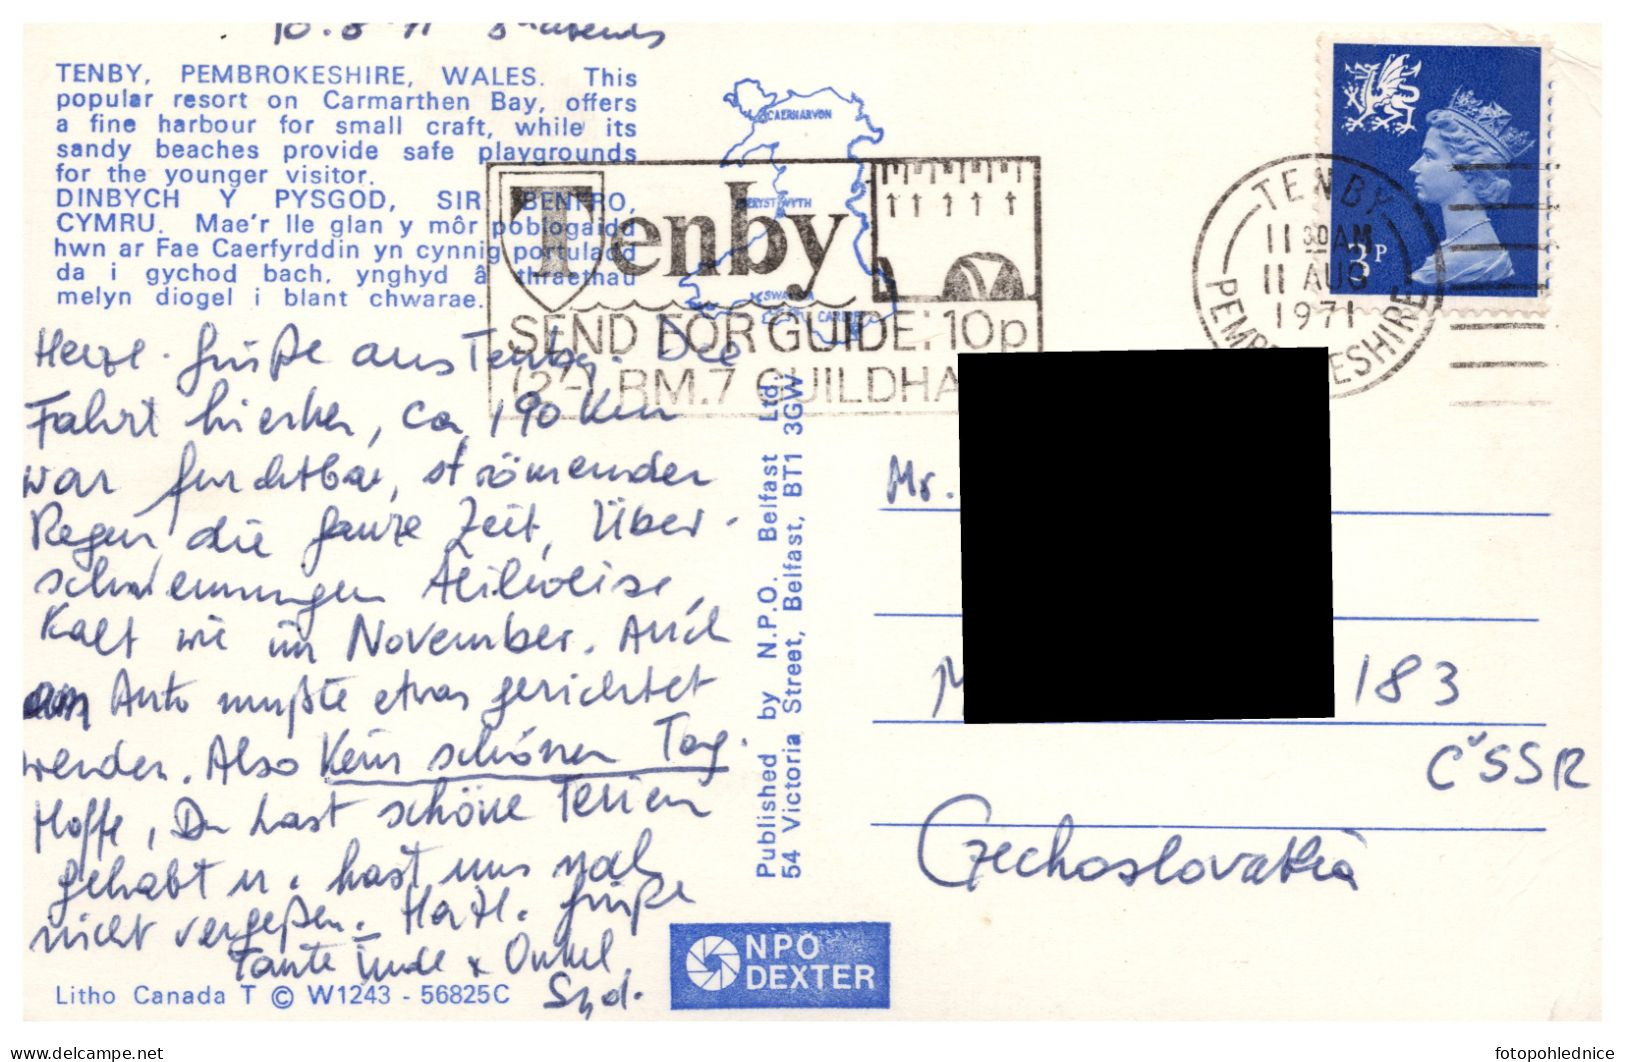 10.8.71 abends
TENBY, PEMBROKESHIRE, WALES. This
popular resort on Carmarthen Bay, offers
a fine harbour for small craft, while its
sandy beaches provide safe playgrounds
for the younger visitor.
DINBYCH Y PYSGOD, SIR BENFRO,
CYMRU. Mae'r lle glan y môr poblogaidd
hwn ar Fae Caerfyrddin yn cynnig portuladd
da i gychod bach, ynghyd â thraethau
melyn diogel i blant chwarae.
Herzl. Grüße aus Tenby. Die
Fahrt hierher, ca. 190 km
war furchtbar, strömender
Regen die ganze Zeit, Über-
schwemmungen teilweise,
Kalt wie im November. Auch
am Auto mußte etwas gerichtet
werden. Also kein schöner Tag.
Hoffe, Du hast schöne Ferien
gehabt u. hast uns noch
nicht vergessen. Herzl. Grüße
Tante & Onkel
Syd.
Litho Canada T © W1243 - 56825C
CAERNARVON
SWANSEA
CARDIFF
Tenby
SEND FOR GUIDE: 10p
(2/-) RM.7 GUILDHA
Published by N.P.O. Belfast Ltd.
54 Victoria Street, Belfast, BT1 3GW
NPO
DEXTER
3P
TENBY
11 30AM
11 AUG
1971
PEMBROKESHIRE
Mr.
183
ČSSR
Czechoslovakia
www.delcampe.net
fotopohlednice